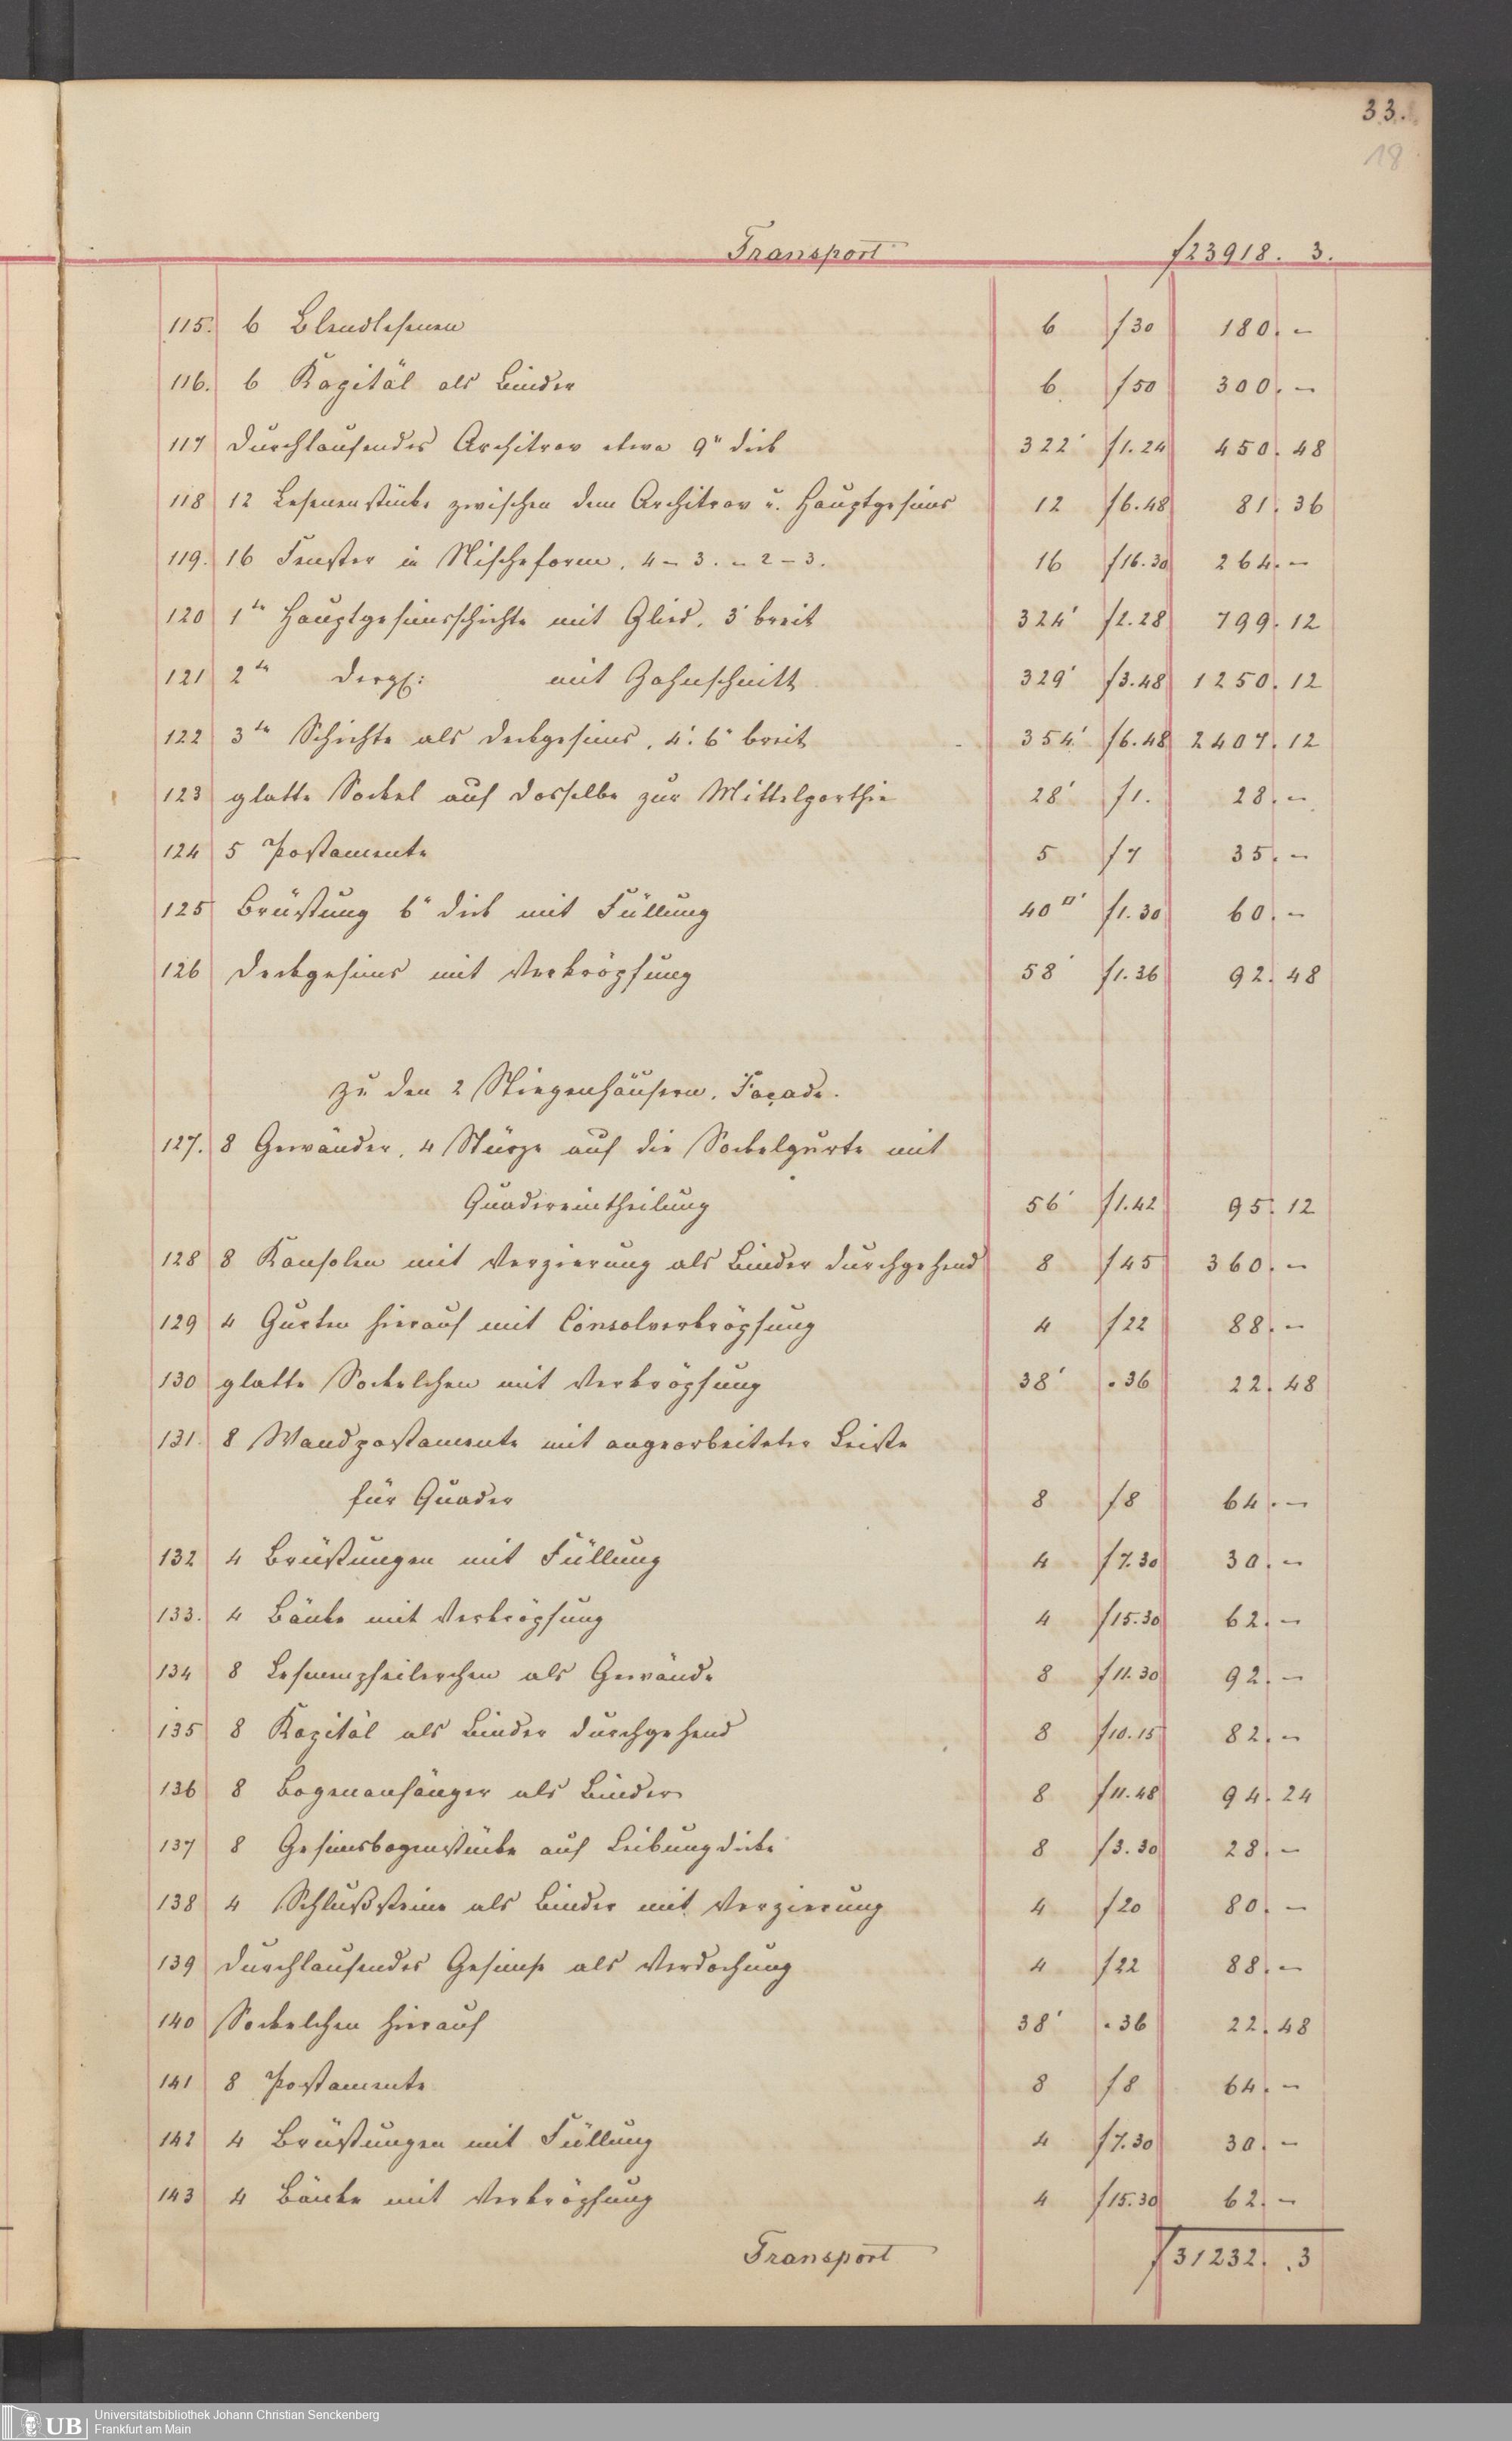 33.
18
Transport f 23918. 3.
115. 6 Blendlesenen 6 f 30 180. –
116. 6 Kapitäl als Binder 6 f 50 300. –
117 Durchlaufendes Architrav etwa 9" dick 322' f 1.24 450. 48
118 12 Lesenenstücke zwischen dem Architrav u. Hauptgesims 12 f 6.48 81. 36
119. 16 Fenster in Nischeform. 4 – 3. – 2 – 3. 16 f 16.30 264. –
120 1te Hauptgesimsschichte mit Glied. 3' breit 324' f 2.28 799. 12
121 2te dergl: mit Zahnschnitt 329' f 3.48 1250. 12
122 3te Schichte als Deckgesims, 4'. 6" breit 354' f 6.48 2407. 12
123 glatte Sockel auf dasselbe zur Mittelparthie 28' f 1. 28. –
124 5 Postamente 5 f 7 35. –
125 Brüstung 6" dick mit Füllung 40□' f 1.30 60. –
126 Deckgesims mit Verkröpfung 58' f 1.36 92. 48
zu den 2 Stiegenhäusern. Façade.
127. 8 Gewänder, 4 Stürze auf die Sockelgurte mit
Quadereintheilung 56' f 1.42 95. 12
128 8 Konsolen mit Verzierung als Binder durchgehend 8 f 45 360. –
129 4 Gurten hierauf mit Consolverkröpfung 4 f 22 88. –
130 glatte Sockelchen mit Verkröpfung 38' . 36 22. 48
131. 8 Wandpostamente mit angearbeiteter Leiste
für Quader 8 f 8 64. –
132 4 Brüstungen mit Füllung 4 f 7.30 30. –
133. 4 Bänke mit Verkröpfung 4 f 15.30 62. –
134 8 Lesenenpfeilerchen als Gewände 8 f 11.30 92. –
135 8 Kapitäl als Binder durchgehend 8 f 10.15 82. –
136 8 Bogenanfänger als Binder 8 f 11.48 94. 24
137 8 Gesimsbogenstücke auf Leibungdicke 8 f 3.30 28. –
138 4 Schlußsteine als Binder mit Verzierung 4 f 20 80. –
139 Durchlaufendes Gesimse als Verdachung 4 f 22 88. –
140 Sockelchen hierauf 38' . 36 22. 48
141 8 Postamente 8 f 8 64. –
142 4 Brüstungen mit Füllung 4 f 7.30 30. –
143 4 Bänke mit Verkröpfung 4 f 15.30 62. –
Transport f 31232. . 3
UB
Universitätsbibliothek Johann Christian Senckenberg
Frankfurt am Main